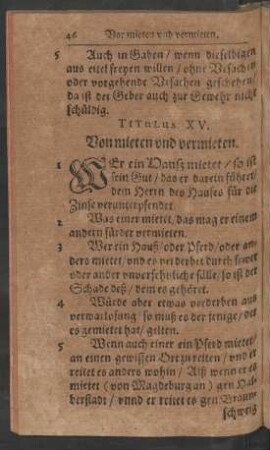 46 Von mieten vnd vermieten.
5 Auch in Gaben / wenn dieselbigen
aus eitel freyen willen / ohne Vrsachen
oder vorgehende Vrsachen geschehen /
da ist der Geber auch zur Gewehr nicht
schüldig.
TITULUS XV.
Von mieten vnd vermieten.
1 WEr ein Hausz mietet / so ist
sein Gut / das er darein führet /
dem Herrn des Hauses für die
Zinse verunterpfendet.
2 Was einer mietet, das mag er einem
andern fürder vermieten.
3 Wer ein Hauß / oder Pferd / oder an-
ders mietet, vnd es verderbet durch fewer
oder ander vnversehnliche fälle / so ist der
Schade deß / dem es gehöret.
4 Würde aber etwas verderben aus
verwarlosung / so muß es der jenige / der
es gemietet hat / gelten.
5 Wenn auch einer ein Pferd mietet /
an einen gewissen Ort zu reiten / vnd er
reitet es anders wohin / Alß wenn er es
mietet (von Magdeburg an) gen Hal-
berstadt / vnnd er reitet es gen Braun-
schweig